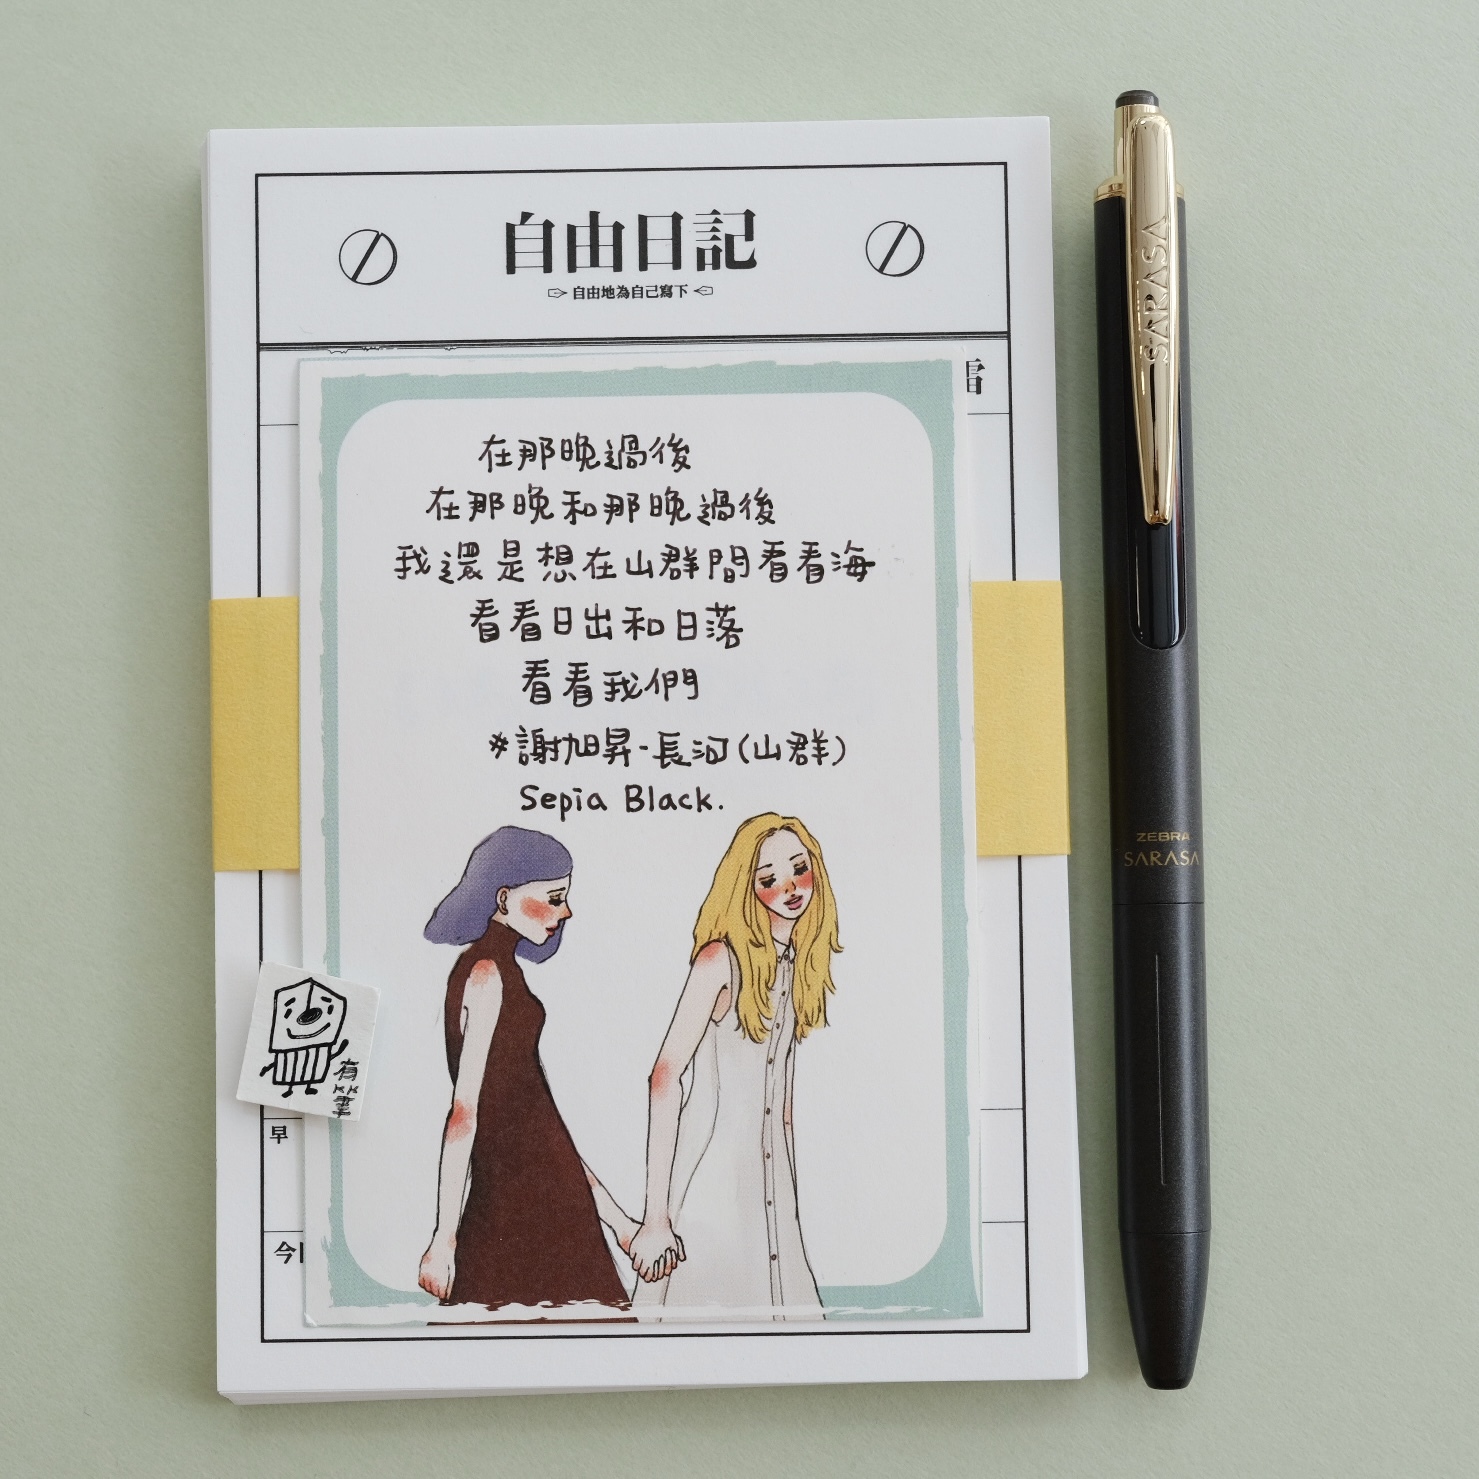 自由日記
自由地為自己寫下
雷
在那晚過後
在那晚和那晚過後
我還是想在山群間看看海
看看日出和日落
看看我們
*謝旭昇-長河(山群)
Sepia Black.
早
今日
SARASA
ZEBRA
SARASA